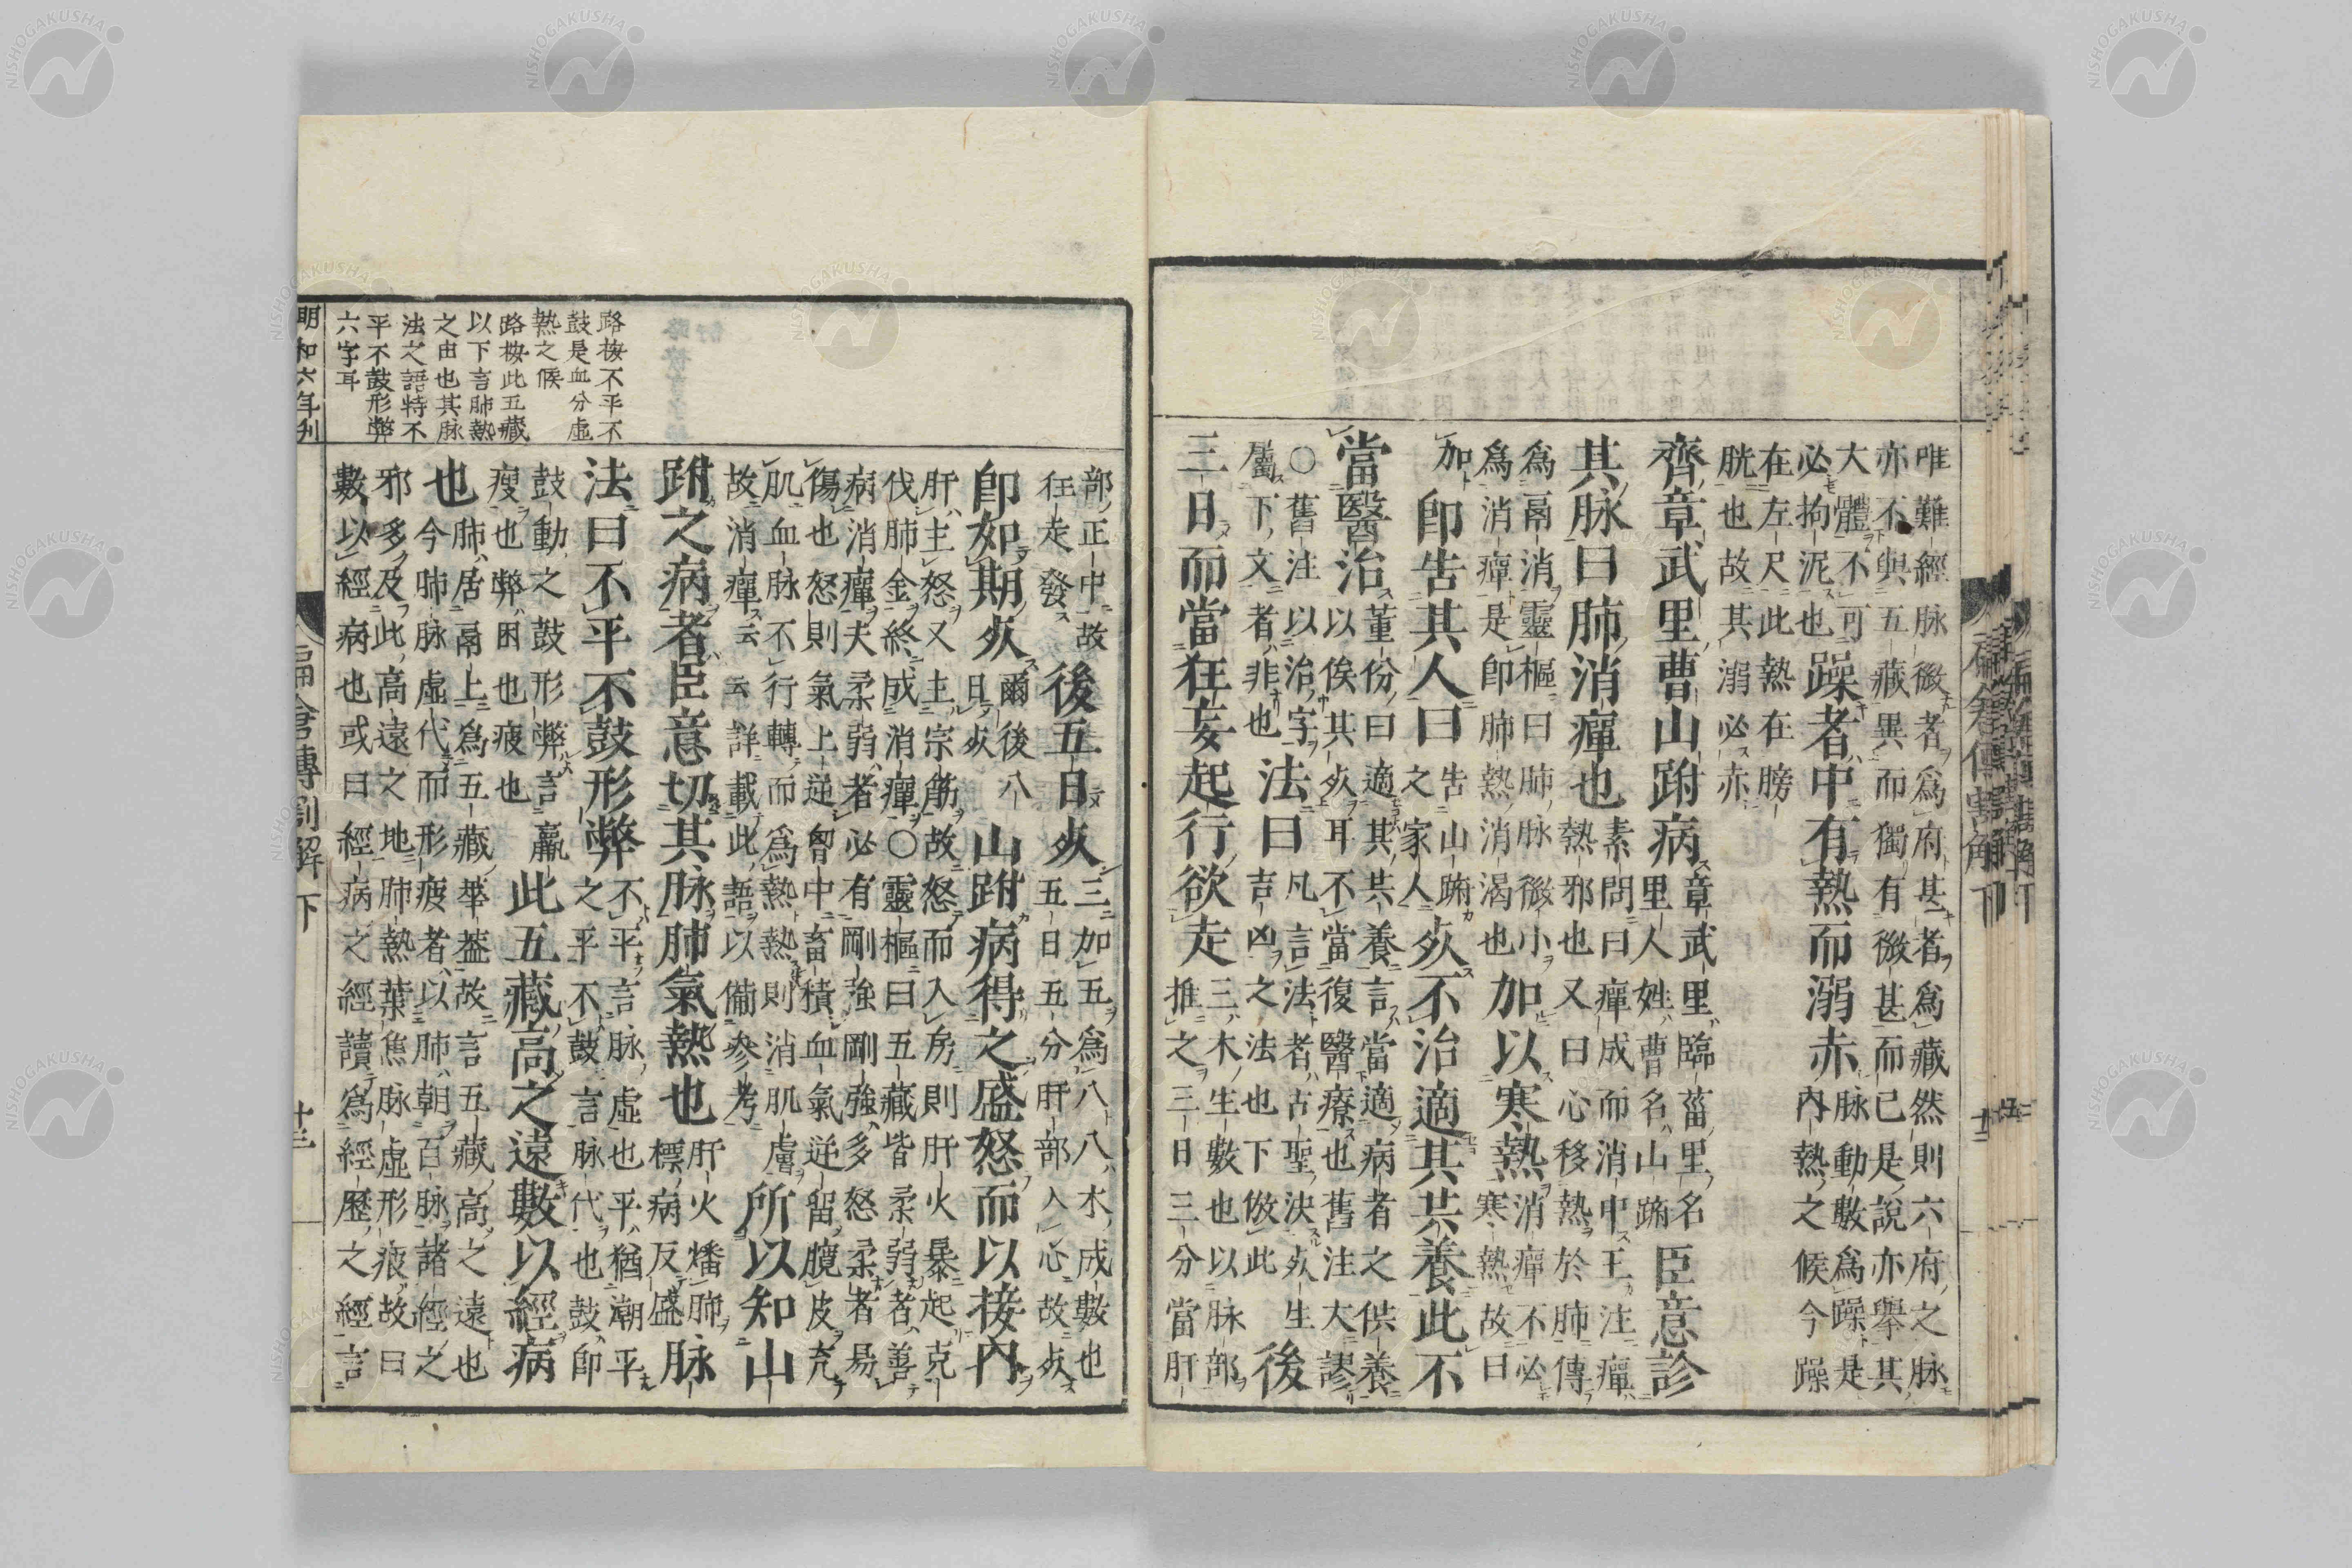 扁倉傳割解 下
唯難經脉微者爲府甚者爲藏然則六府之脉
亦不與五藏異而獨有微甚而已是說亦舉其
大體不可
必拘泥也
躁者中有熱而溺赤
脉動數爲躁是
內熱之候今躁
在左尺此熱在膀
胱也故其溺必赤
齊章武里曹山跗病
章武里臨菑里名
里人姓曹名山跗
臣意診
其脉曰肺消癉也
素問曰癉成而消中王注癉
熱邪也又曰心移熱於肺傳
爲鬲消靈樞曰肺脉微小
爲消癉是即肺熱消渴也
加以寒熱
消癉不必
寒熱故曰
加
即告其人曰
告山跗
之家人
死不治適其共養此不
當醫治
董份曰適其共養言當適病者之供養
以俟其死耳不當復醫療也舊注大謬
○舊注以治字
屬下文者非也
法曰
凡言法者古聖決死生
吉凶之法也下倣此
後
三日而當狂妄起行欲走
三木生數也以脉部
推之三日三分當肝
部正中故
狂走發
後五日死
三加五爲八八木成數也
五日五分肝部入心故死
即如期死
爾後八
日死
山跗病得之盛怒而以接內
肝主怒又主宗筋故怒而入房則肝火暴起克
伐肺金終成消癉○靈樞曰五藏皆柔弱者善
病消癉夫柔弱者必有剛強剛強多怒柔者易
傷也怒則氣上逆胷中畜積血氣逆留臗皮充
肌血脉不行轉而爲熱熱則消肌膚
故消癉云云詳載此語以備參考
所以知山
跗之病者臣意切其脉肺氣熱也
肝火燔肺
標病反盛
脉
法曰不平不鼓形弊
不平言脉虛也平猶潮平
之平不鼓言脉代也鼓即
鼓動之鼓形弊言羸
瘦也弊困也疲也
此五藏高之遠數以經病
也
肺居鬲上爲五藏華蓋故言五藏高之遠也
今肺脉虛代而形疲者以肺朝百脉諸經之
邪多及此高遠之地肺熱葉焦脉虛形疲故曰
數以經病也或曰經病之經讀爲經歷之經言
路桉不平不
鼓是血分虛
熱之候
路桉此五藏
以下言肺熱
之由也其脉
法之語特不
平不鼓形弊
六字耳
明和六年刊
扁倉傳割解 下
十三